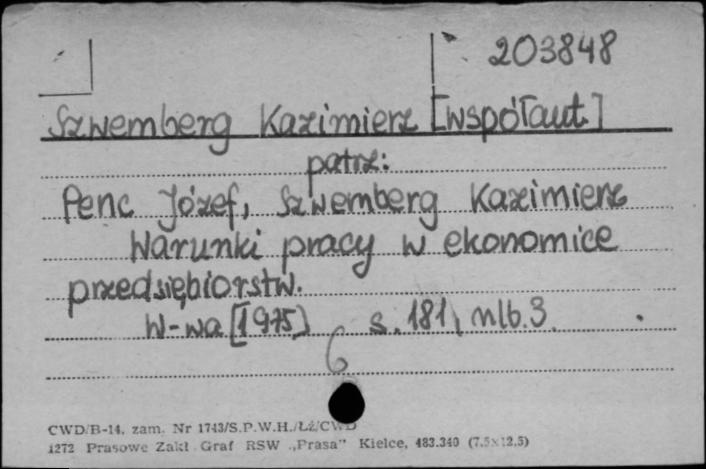 203848
Szwemberg Kazimierz [współaut.]
patrz:
Penc Józef, Szwemberg Kazimierz
Warunki pracy w ekonomice
przedsiębiorstw.
W-wa [1975] s. 181, nlb. 3.
6
CWD/B-14. zam. Nr 1743/S.P.W.H./Łź/CWD
1272 Prasowe Zakł. Graf RSW „Prasa" Kielce, 483.340 (7.5×12.5)